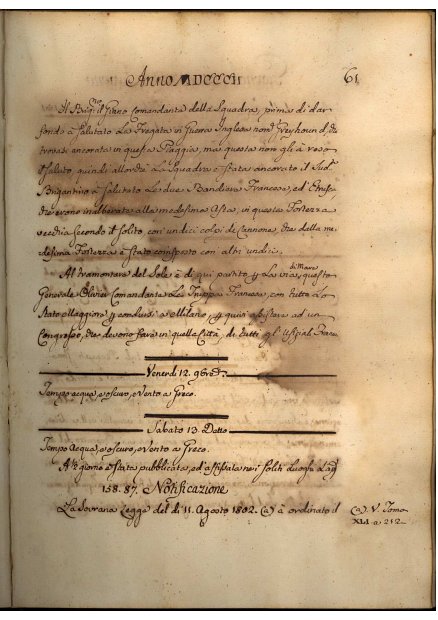 Anno MDCCCII
61
Il Brig.no il Primo Comandante della Squadra, prima di dar
fondo à salutato La Fregata in Guerra Inglese nom.a Greyhound, che
trovasi ancorata in questa Piaggia, ma questa non gli à reso
il saluto, quindi allorchè La Squadra è stata ancorata il Sud.o
Brigantino à salutato Le due Bandiere Francese, ed Etrusca,
che erono inalberate alla medesima Asta, in questa Fortezza
vecchia secondo il solito con undici colpi di Cannone, che dalla me-
desima Fortezza è stato corrisposto con altri undici.
Al tramontare del Sole è di qui partito p La via di Mare, questo
Generale Olivier Comandante Le Truppe Francesi, con tutto Lo
Stato Maggiore p condursi a Milano, p quivi assistere ad un
Congresso, che devono fare in quella Città, di tutti gl' Uffiziali Franc.i
Venerdì 12. 9bre d.o
Tempo acqua, e oscuro, e Vento a Greco.
Sabato 13. Detto
Tempo Acqua, e oscuro, e Vento a Greco.
A' giorno è stata pubblicata, ed affissata nei soliti Luoghi La
158. 87. Notificazione
La Sovrana Legge del dì 11. Agosto 1802. (a) à ordinato il
(a) V. Tomo
XLI. a 212.